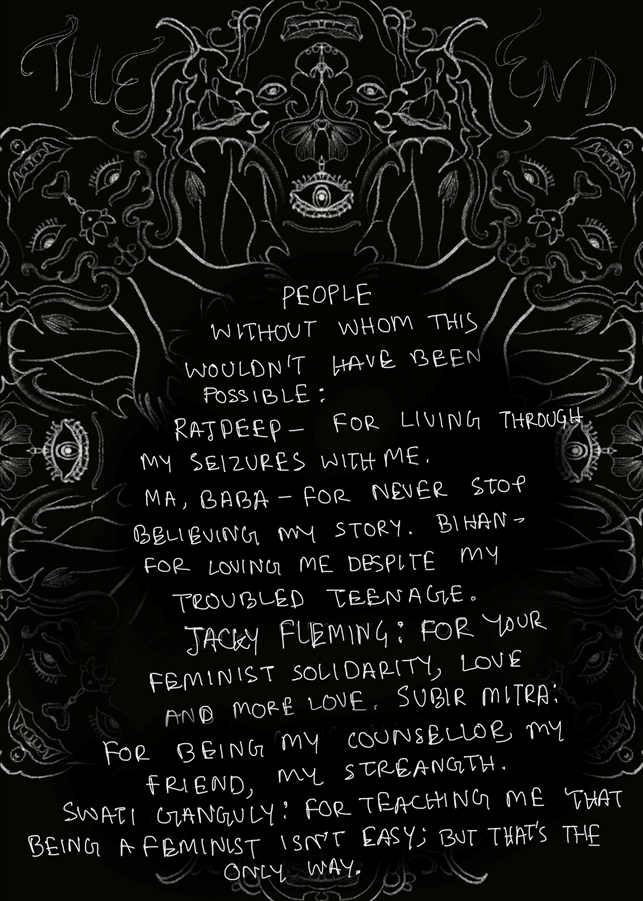 THE END
PEOPLE
WITHOUT WHOM THIS
WOULDN'T HAVE BEEN
POSSIBLE:
RAJPEEP— FOR LIVING THROUGH
MY SEIZURES WITH ME.
MA, BABA — FOR NEVER STOP
BELIEVING MY STORY. BIHAN—
FOR LOVING ME DESPITE MY
TROUBLED TEENAGE.
JACKY FLEMING: FOR YOUR
FEMINIST SOLIDARITY, LOVE
AND MORE LOVE. SUBIR MITRA:
FOR BEING MY COUNSELLOR, MY
FRIEND, MY STREANGTH.
SWATI GANGULY: FOR TEACHING ME THAT
BEING A FEMINIST ISN'T EASY; BUT THAT'S THE
ONLY WAY.